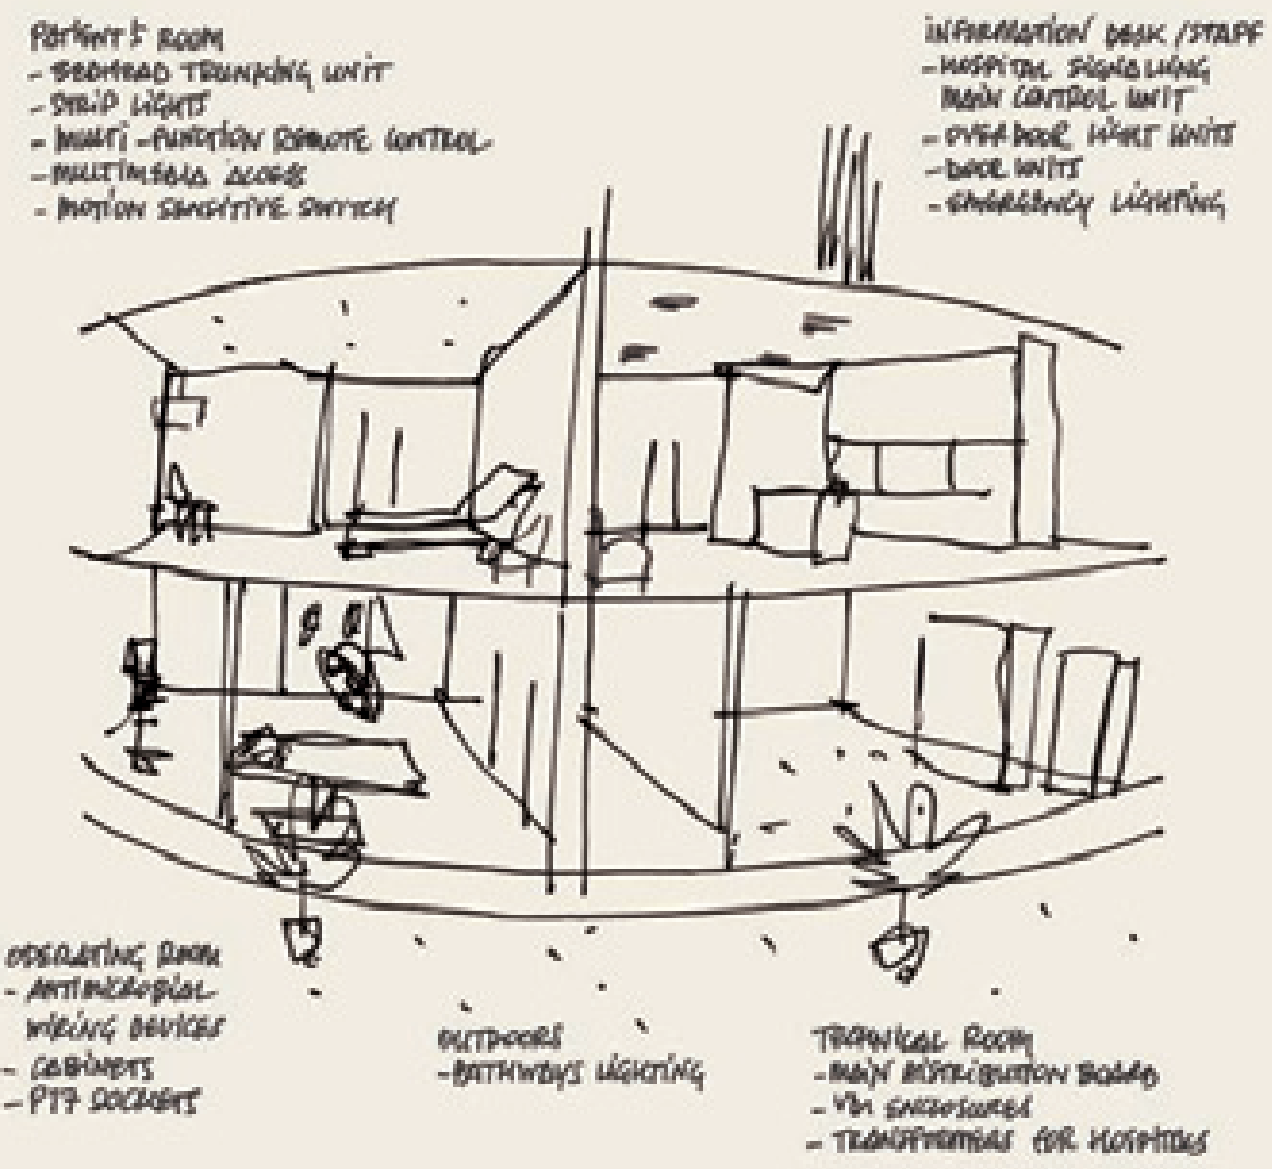 PATIENT'S ROOM
- BEDHEAD TRUNKING UNIT
- STRIP LIGHTS
- MULTI-FUNCTION REMOTE CONTROL
- MULTIMEDIA ACCESS
- MOTION SENSITIVE SWITCH
INFORMATION DESK / STAFF
- HOSPITAL SIGNALLING
MAIN CONTROL UNIT
- OVERDOOR LIGHT UNITS
- DOOR UNITS
- EMERGENCY LIGHTING
OPERATING ROOM
- ANTIMICROBIAL
WIRING DEVICES
- CABINETS
- P17 SOCKETS
OUTDOORS
- PATHWAYS LIGHTING
TECHNICAL ROOM
- MAIN DISTRIBUTION BOARD
- ENCLOSURES
- TRANSFORMERS FOR HOSPITALS